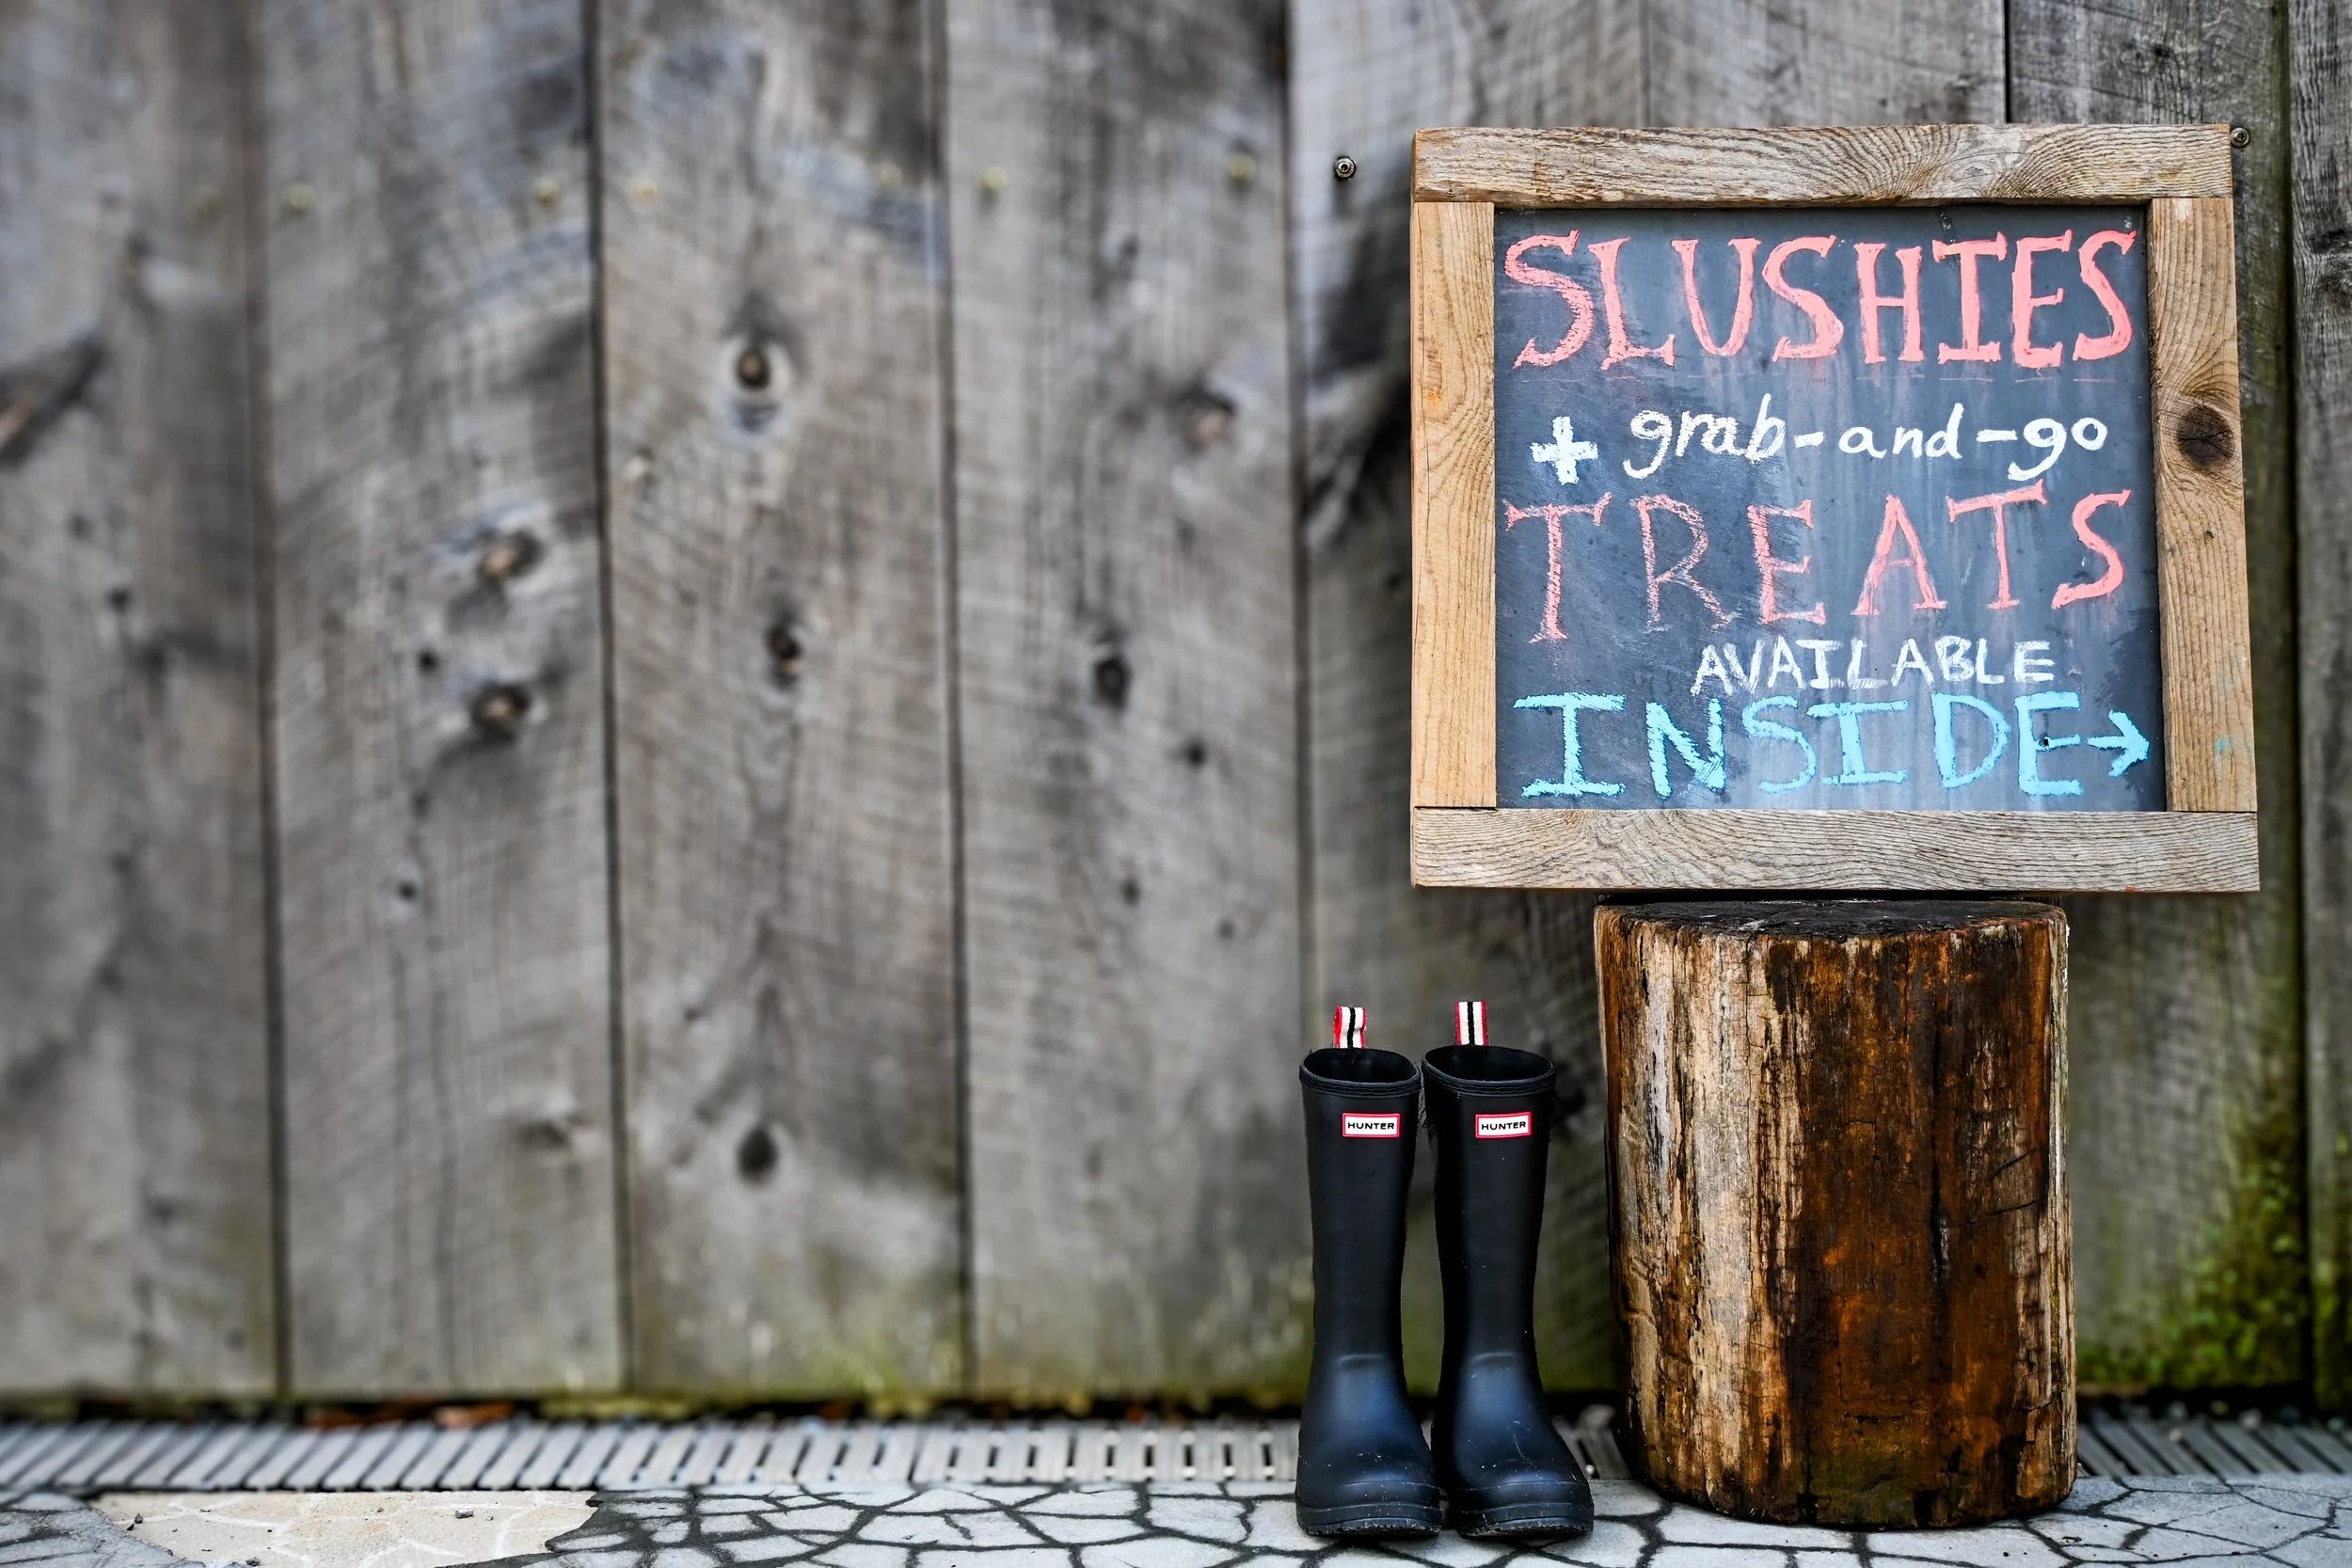 SLUSHIES
+ grab-and-go
TREATS
AVAILABLE
INSIDE→
HUNTER
HUNTER